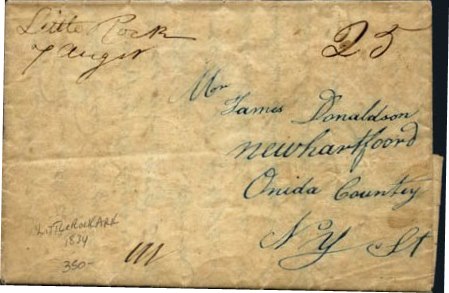 Little Rock
7 August
25
Mr
James Donaldson
newhartfoord
Onida Countey
NY St
LITTLE ROCK ARK
1834
350-